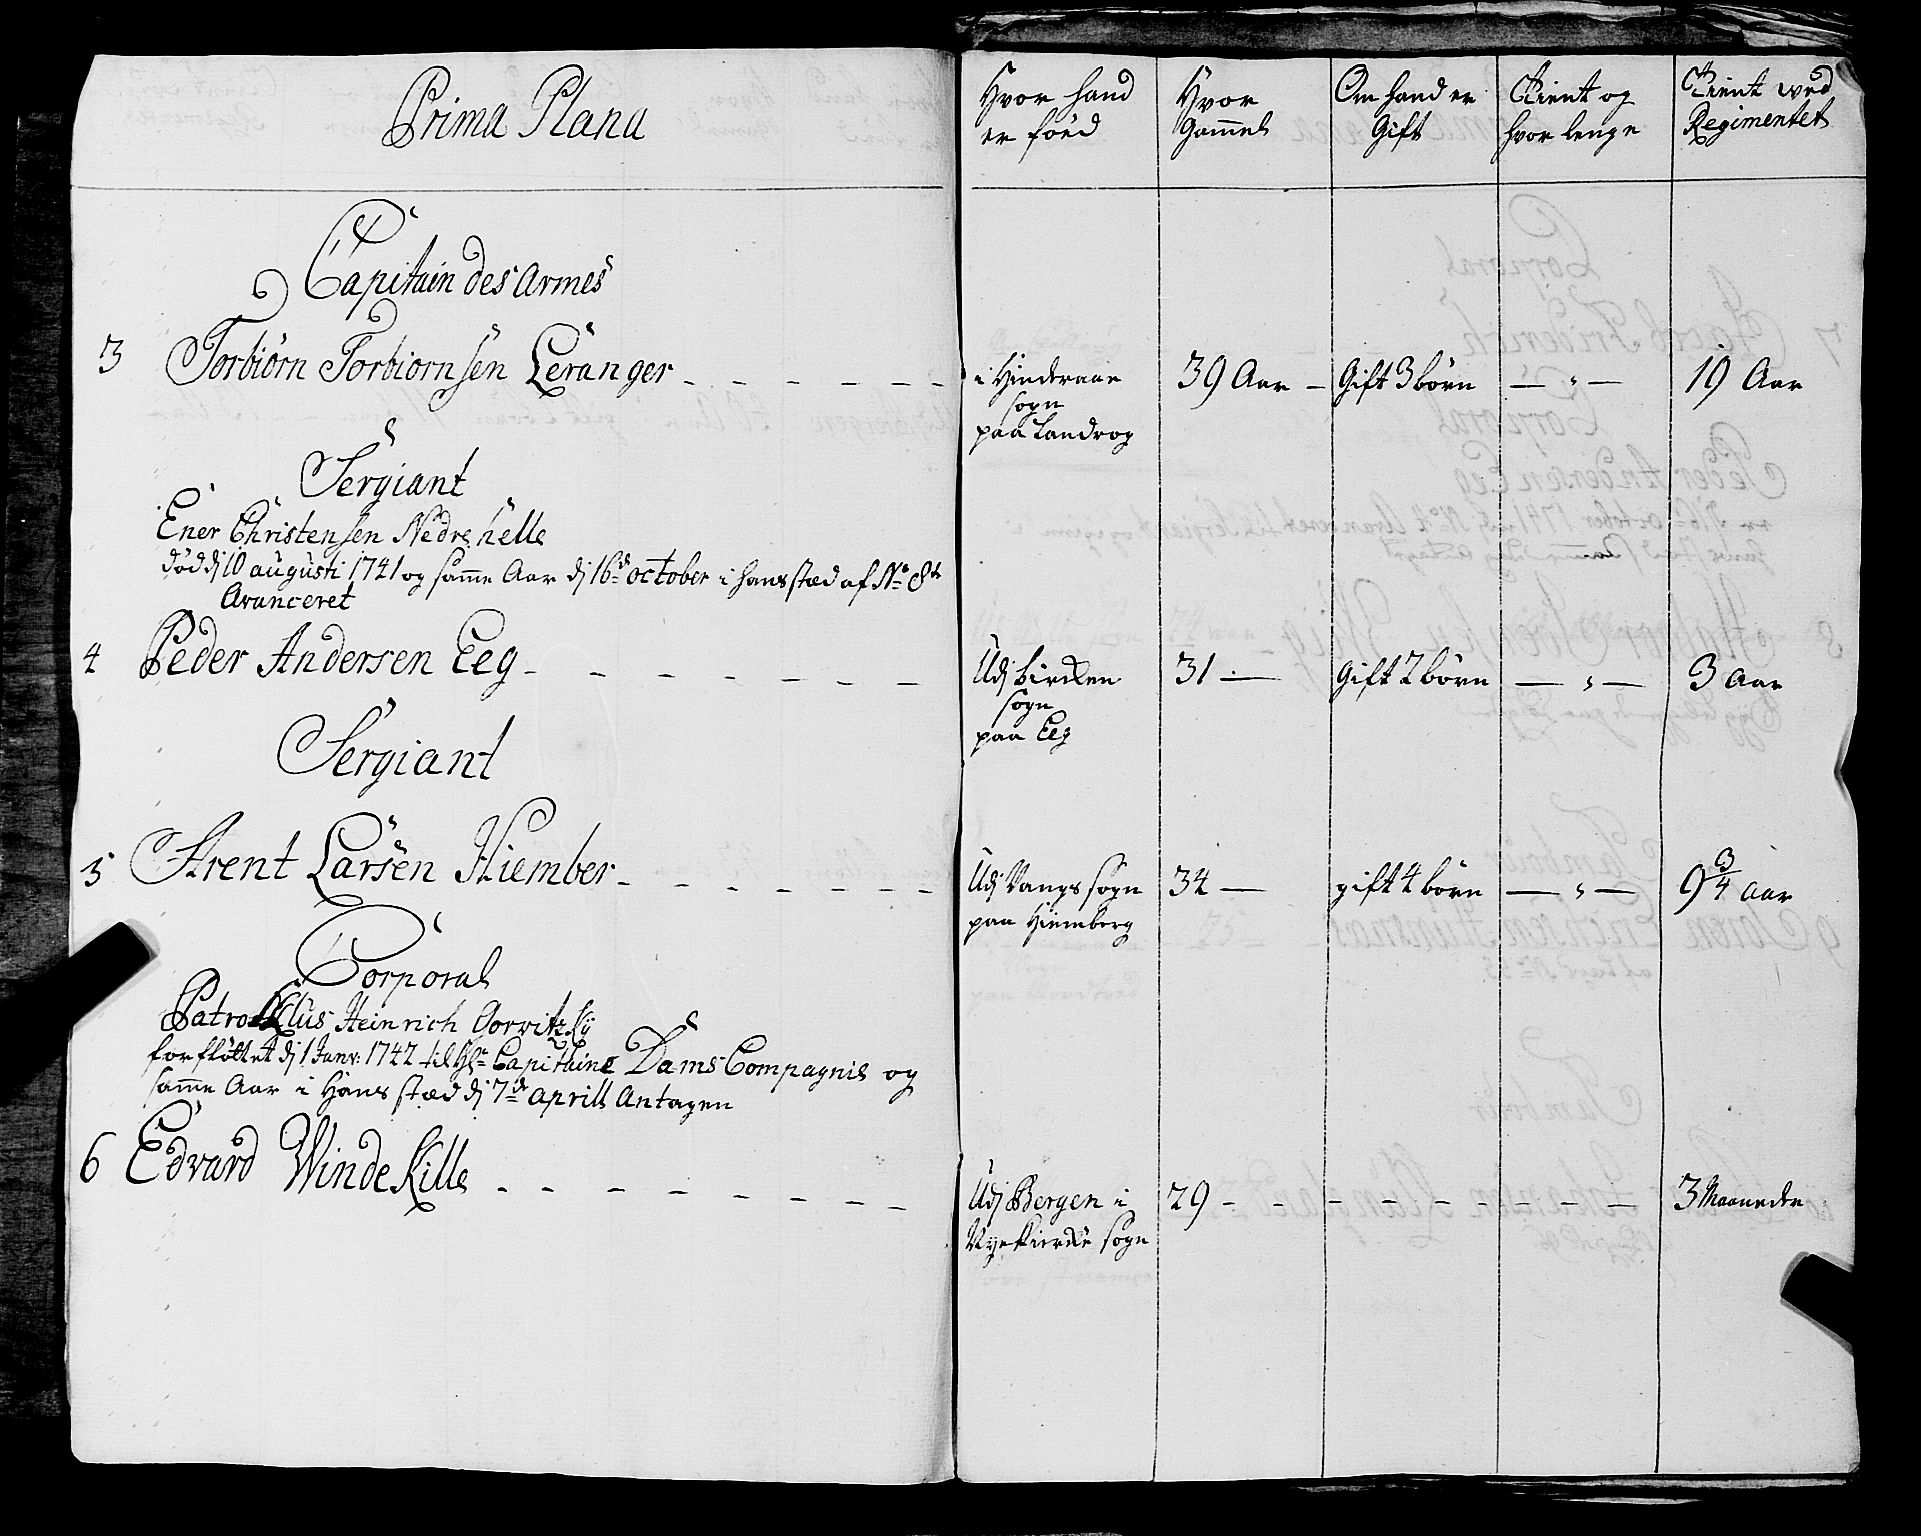 Prima Plana
Hvor hand
er föed
Hvor
Gam̄el
Om hand er
Gift
Tient og
hvor lenge
Tient ved
Regimentet
Capitain des Armes
3 Torbiörn Torbiörnsen Leranger - - - - - -
i Hinderaae
sogn
paa Landrog
39 Aar
Gift 3 börn
— " —
19 Aar
Sergiant
Ener Christensen Nedrehelle
död dj 10 augusti 1741 og sam̄e Aar dj 16de october i hans stæd af No 8te
Avanceret
4 Peder Andersen Eeg - - - - - - -
Udj birchen
sogn
paa Eeg
31 —
Gift 2 börn
— " —
3 Aar
Sergiant
5 Arent Larsen Hiember - - - - - -
Udj Vangs sogn
paa Hiemberg
34 —
gift 4 börn
— " —
9 3/4 Aar
Corporal
Patroclus Heinrich Gorvitzkij
forflöttet dj 1 Janv: 1742 til Hr Capitaine Dams Compagnie og
sam̄e Aar i Hans stæd dj 7de aprill Antagen
6 Edvard Windekille - - - - - - - -
Udj Bergen i
Nyekircke sogn
29 - - - - - - - -
3 Maaneder